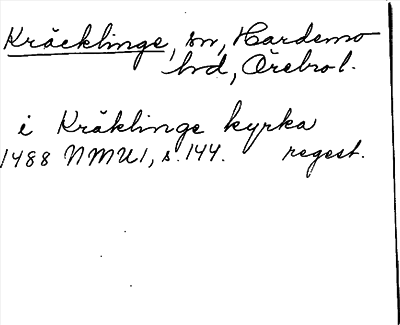 Kräcklinge, sn, Hardemo
hd, Örebro l.
i Kräklinge kyrka
1488 NMU 1, s. 144. regest.